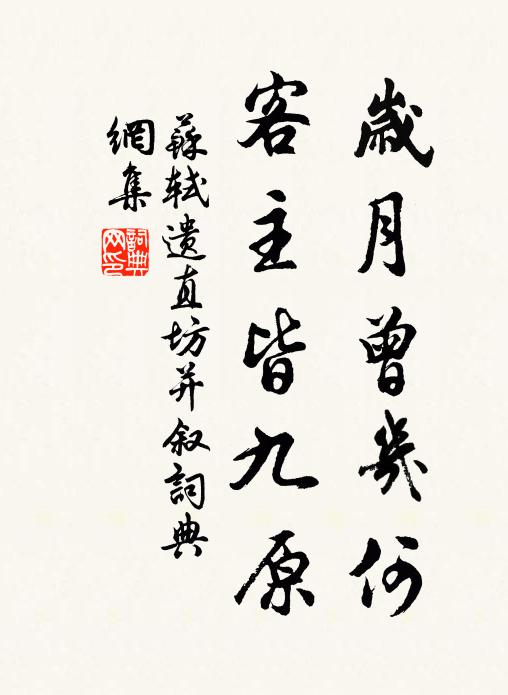 歲月曾幾何
客主皆九原
蘇軾遺直坊并叙詞典
網集
詞典
网印